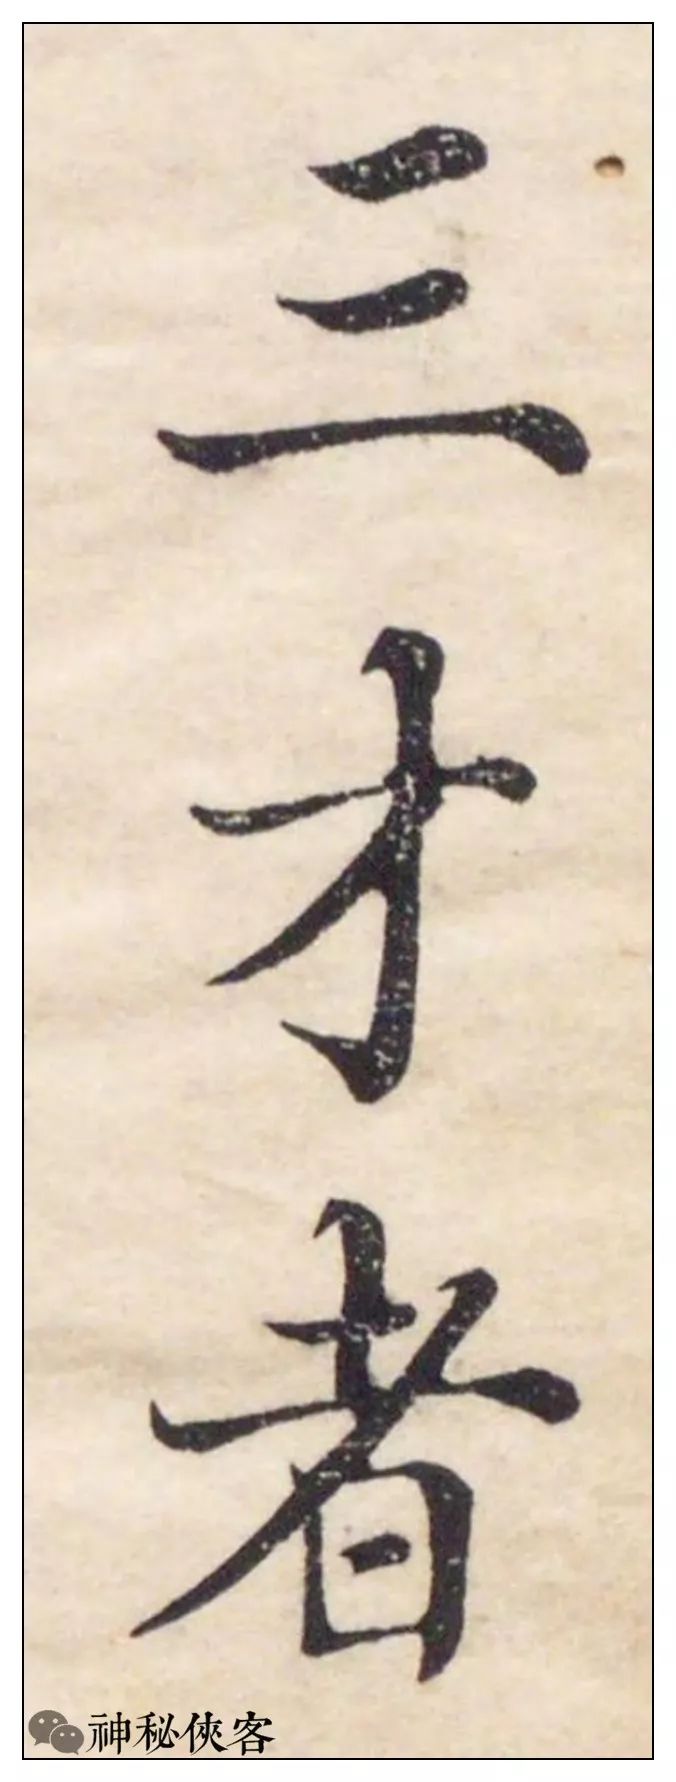 三才者
神秘俠客